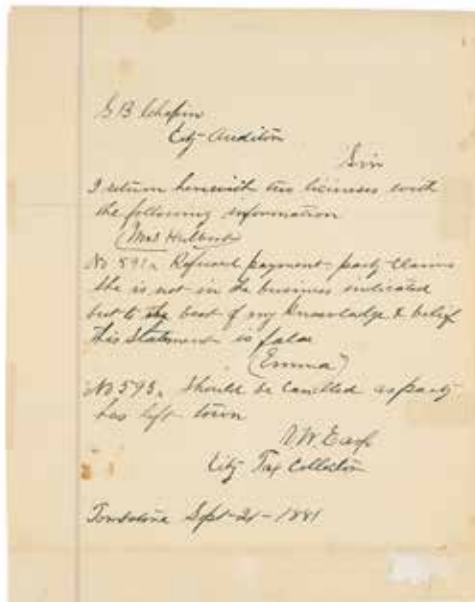 S B Chapin
City Auditor
Sir
I return herewith two licenses with
the following information
(Mrs Hulbert)
No 591. Refused payment party claims
she is not in the business indicated
but to the best of my Knowledge & belief
this statement is false
(Emma)
No 593. Should be cancelled as party
has left town
V W Earp
City Tax Collector
Tombstone Sept 21 - 1881